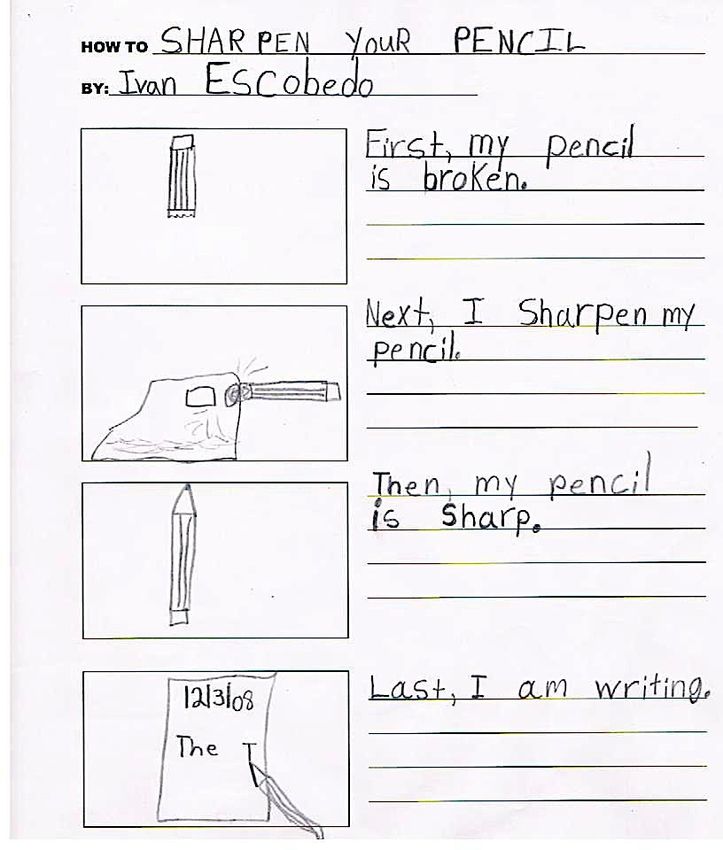 HOW TO SHARPEN YouR PENCIL
BY: Ivan EScobedo
First, my pencil
is broken.
Next, I Sharpen my
pencil.
Then, my pencil
is Sharp.
12/3/08
The T
Last, I am writing.